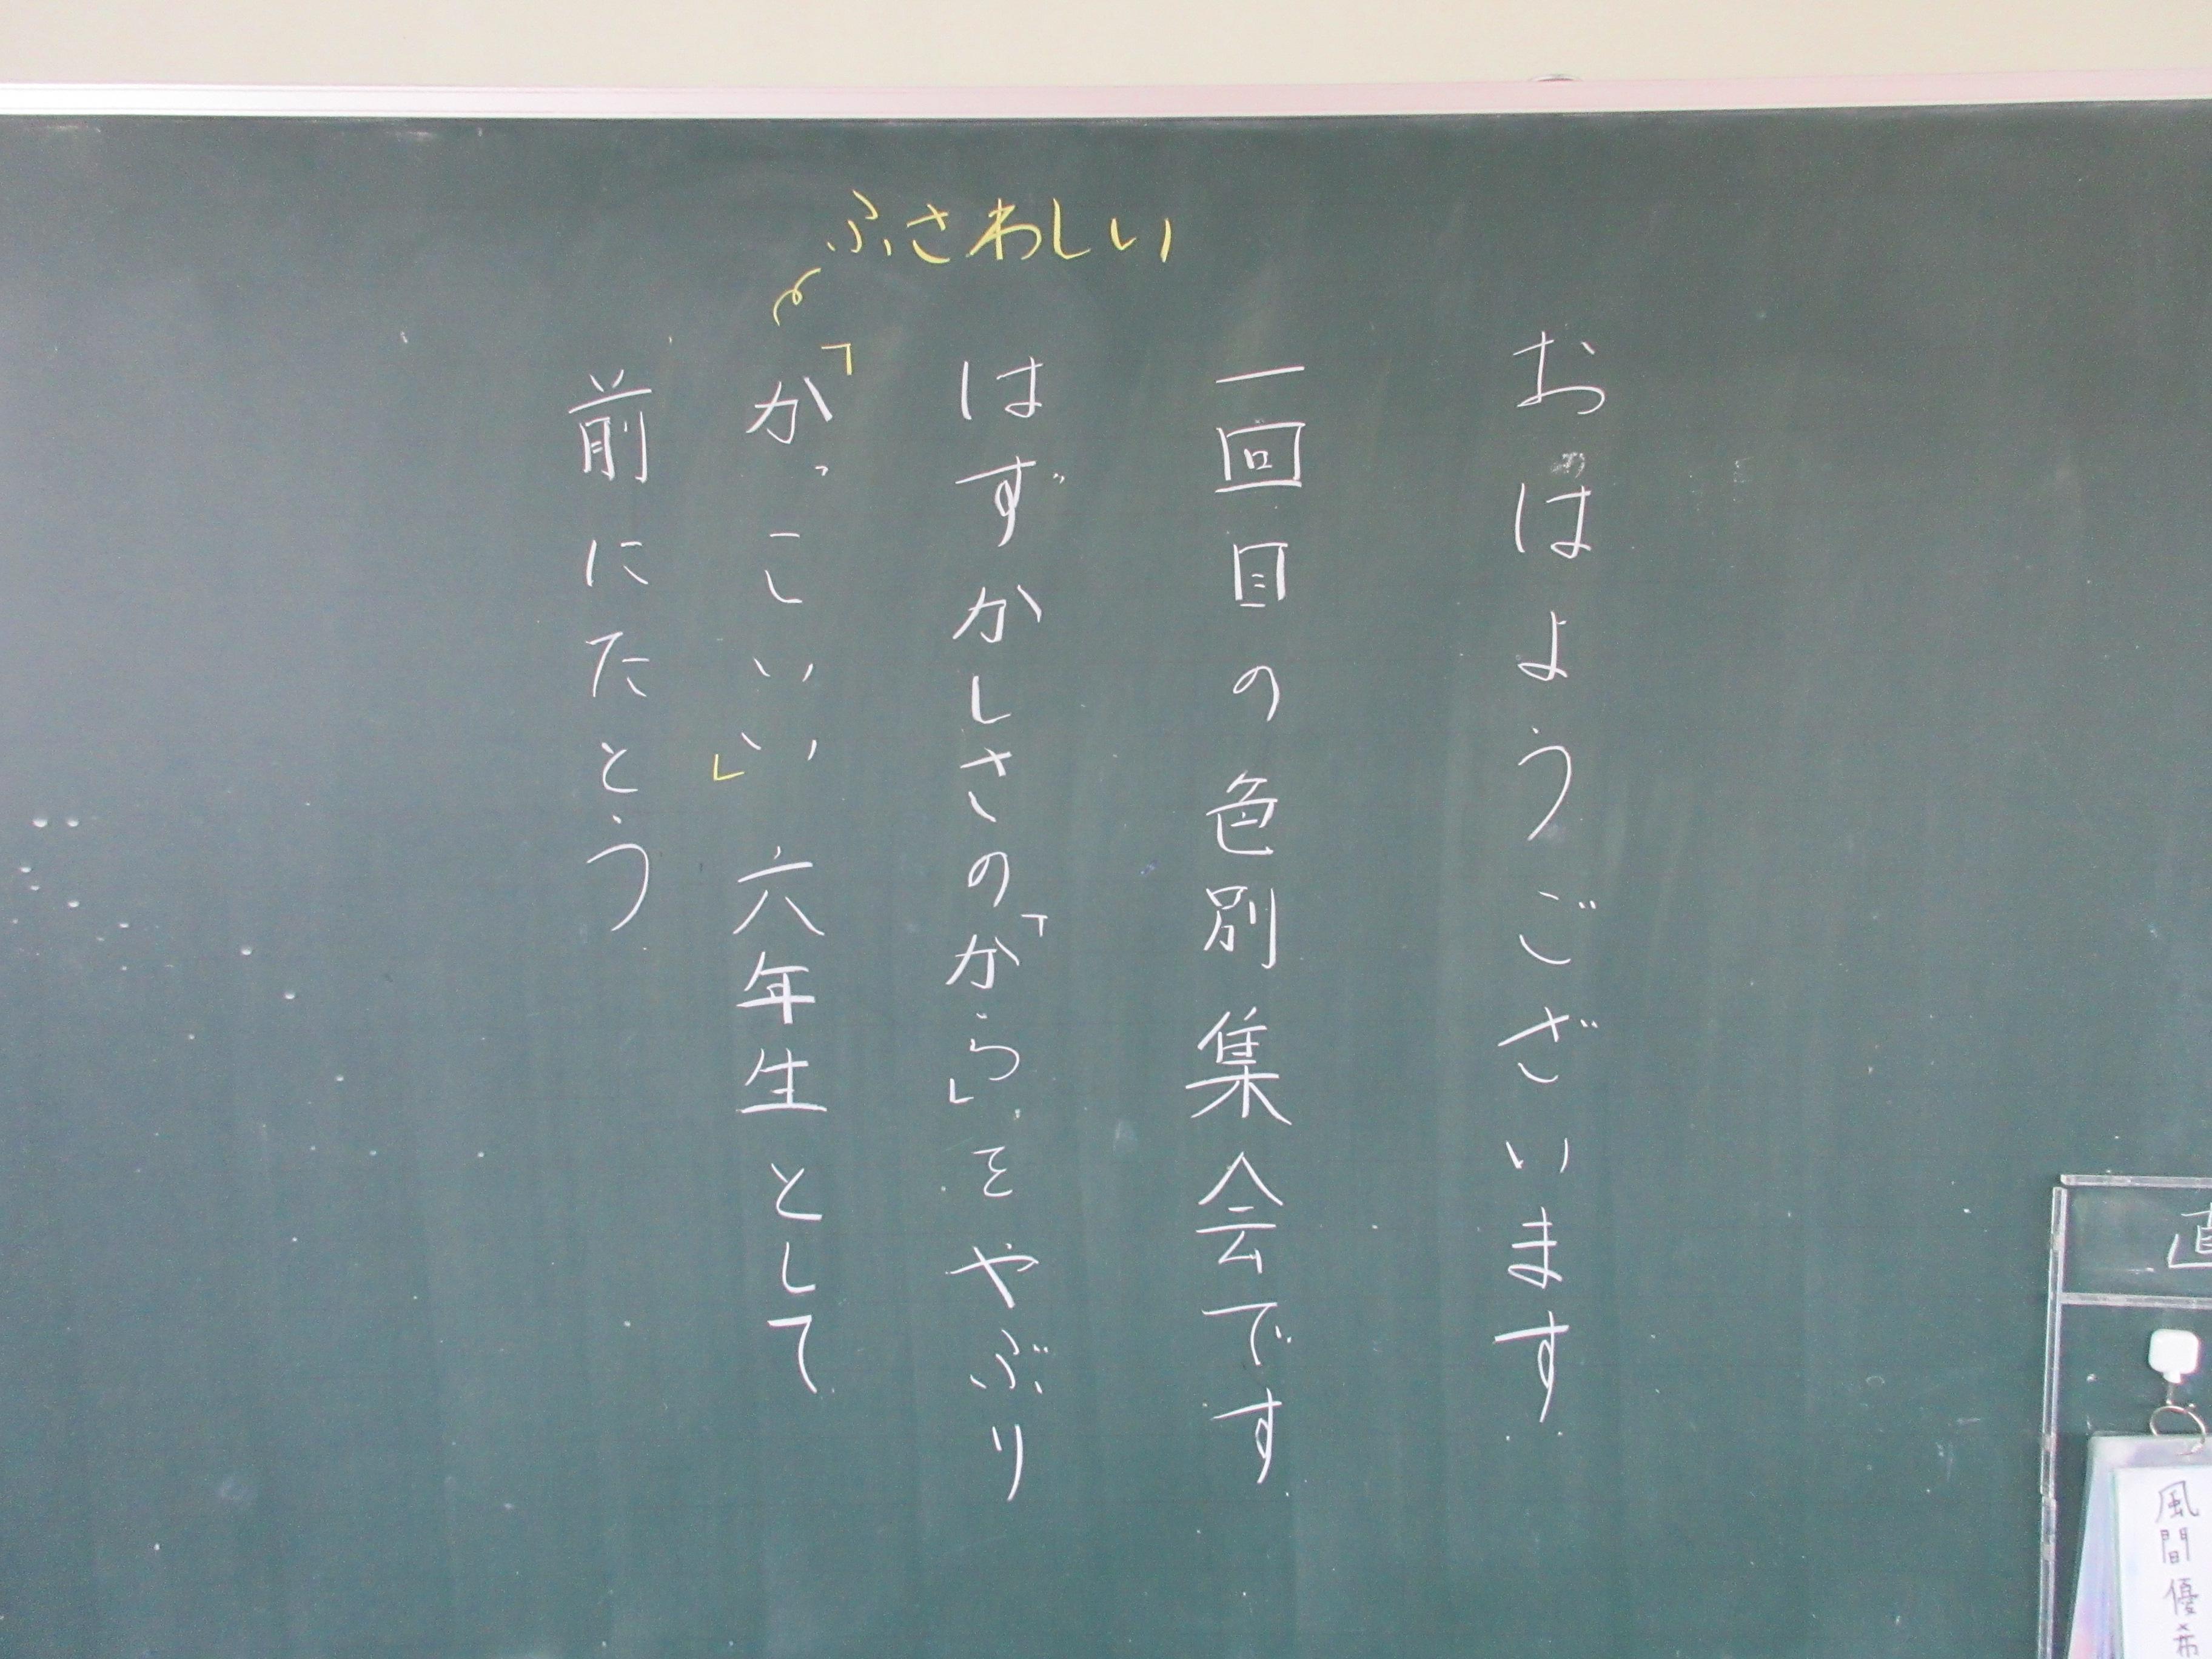 おはようございます
一回目の色別集会です
はずかしさの「から」をやぶり
ふさわしい
「かっこいい」六年生として
前にたとう
直
風間優希